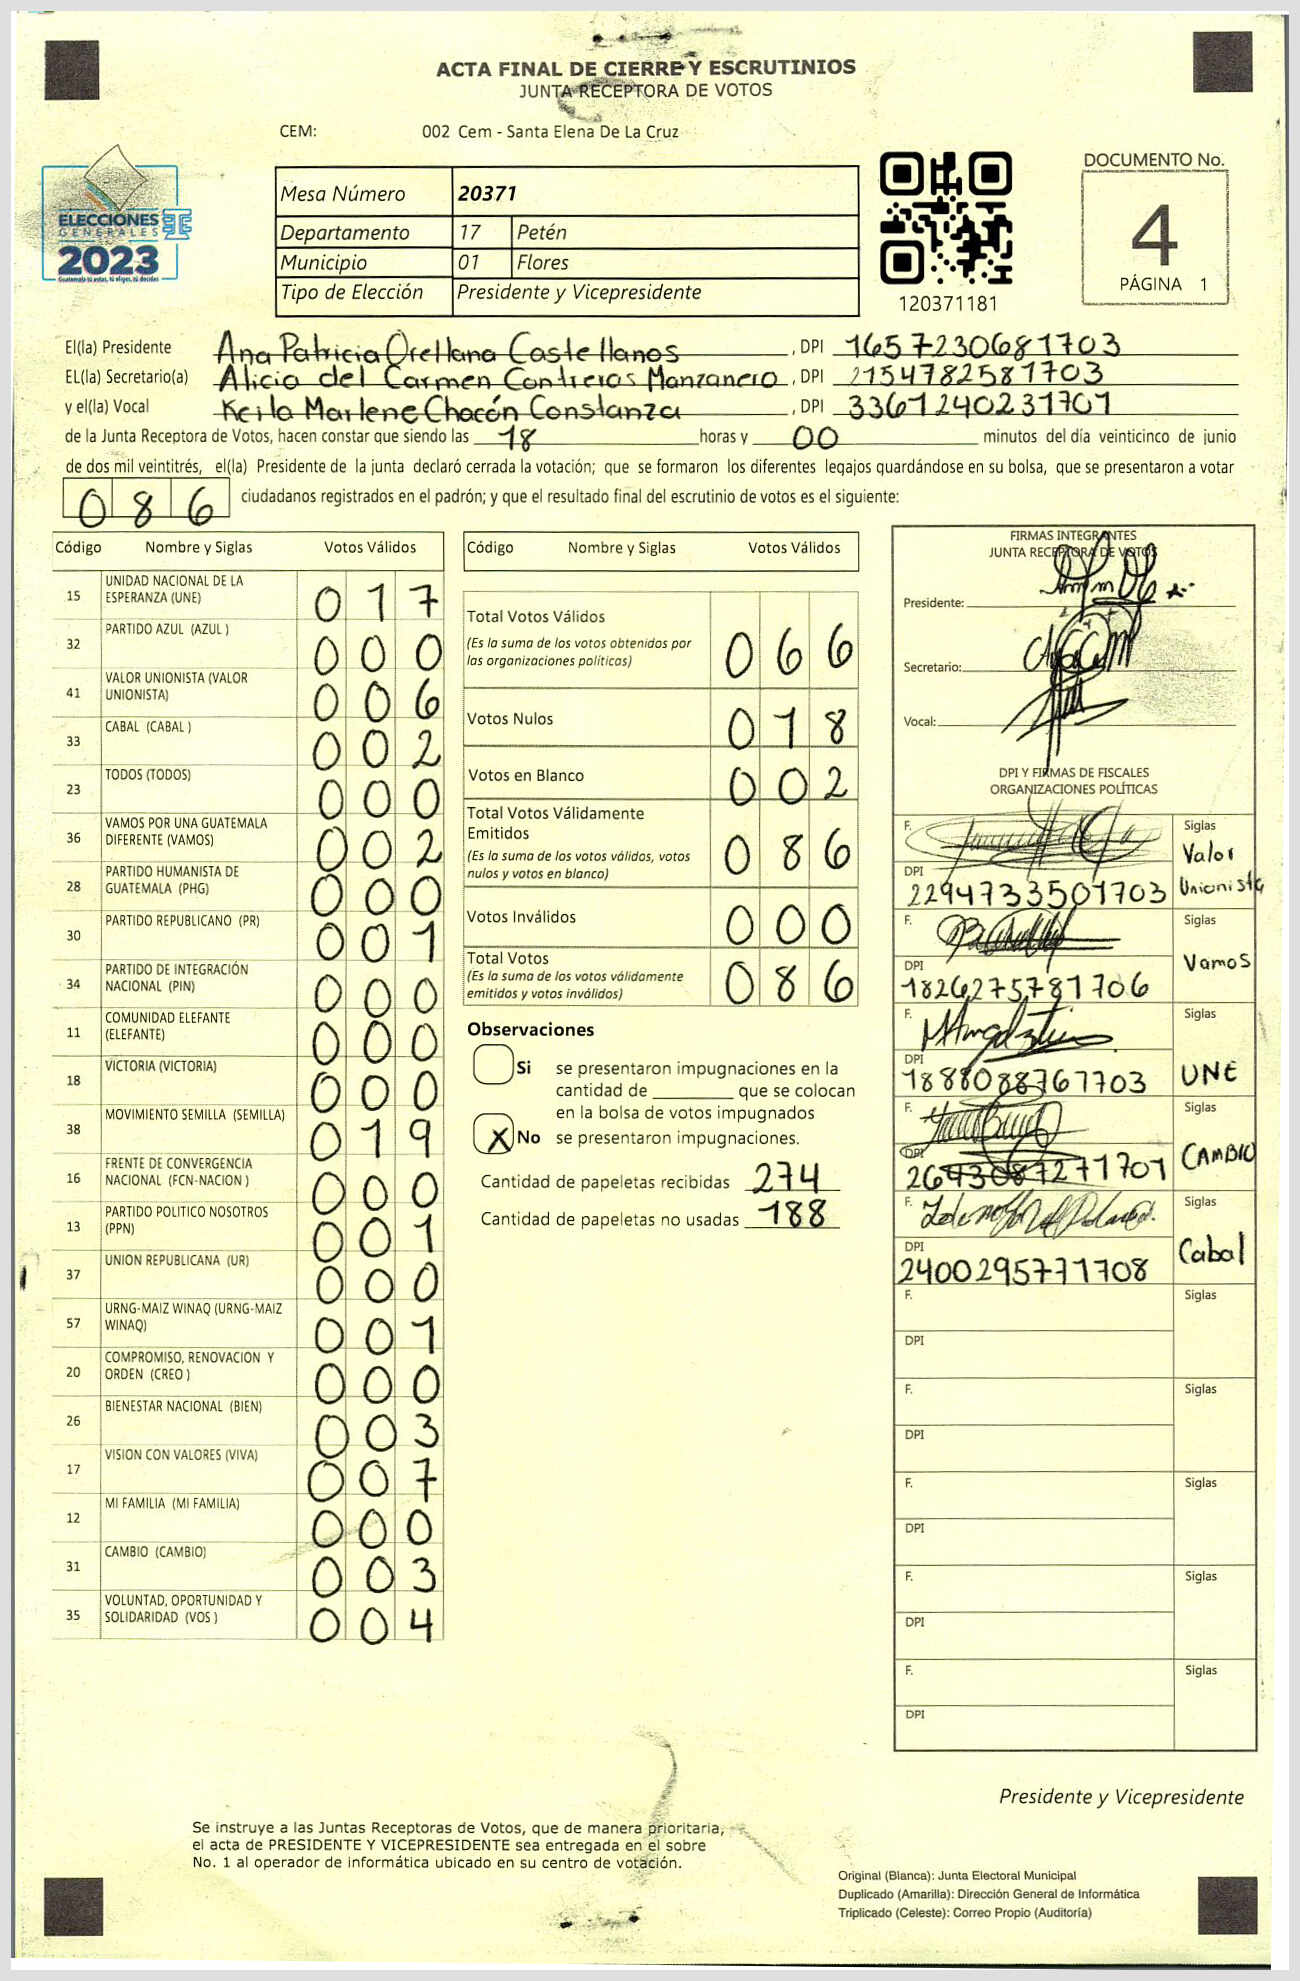 ACTA FINAL DE CIERRE Y ESCRUTINIOS
JUNTA RECEPTORA DE VOTOS
CEM: 002 Cem - Santa Elena De La Cruz
ELECCIONES
GENERALES
2023
TSE
Guatemala tú votas, tú eliges, tú decides
Mesa Número 20371
Departamento 17 Petén
Municipio 01 Flores
Tipo de Elección Presidente y Vicepresidente
120371181
DOCUMENTO No.
4
PÁGINA 1
El(la) Presidente Ana Patricia Orellana Castellanos, DPI 1657230681703
EL(la) Secretario(a) Alicia del Carmen Contreras Manzanero, DPI 2154782581703
y el(la) Vocal Keila Marlene Chacón Constanza, DPI 3361240231701
de la Junta Receptora de Votos, hacen constar que siendo las 18 horas y 00 minutos del día veinticinco de junio
de dos mil veintitrés, el(la) Presidente de la junta declaró cerrada la votación; que se formaron los diferentes legajos guardándose en su bolsa, que se presentaron a votar
086 ciudadanos registrados en el padrón; y que el resultado final del escrutinio de votos es el siguiente:
Código Nombre y Siglas Votos Válidos
15 UNIDAD NACIONAL DE LA ESPERANZA (UNE) 017
32 PARTIDO AZUL (AZUL ) 000
41 VALOR UNIONISTA (VALOR UNIONISTA) 006
33 CABAL (CABAL ) 002
23 TODOS (TODOS) 000
36 VAMOS POR UNA GUATEMALA DIFERENTE (VAMOS) 002
28 PARTIDO HUMANISTA DE GUATEMALA (PHG) 000
30 PARTIDO REPUBLICANO (PR) 001
34 PARTIDO DE INTEGRACIÓN NACIONAL (PIN) 000
11 COMUNIDAD ELEFANTE (ELEFANTE) 000
18 VICTORIA (VICTORIA) 000
38 MOVIMIENTO SEMILLA (SEMILLA) 019
16 FRENTE DE CONVERGENCIA NACIONAL (FCN-NACION ) 000
13 PARTIDO POLITICO NOSOTROS (PPN) 001
37 UNION REPUBLICANA (UR) 000
57 URNG-MAIZ WINAQ (URNG-MAIZ WINAQ) 001
20 COMPROMISO, RENOVACION Y ORDEN (CREO ) 000
26 BIENESTAR NACIONAL (BIEN) 003
17 VISION CON VALORES (VIVA) 007
12 MI FAMILIA (MI FAMILIA) 000
31 CAMBIO (CAMBIO) 003
35 VOLUNTAD, OPORTUNIDAD Y SOLIDARIDAD (VOS ) 004
Código Nombre y Siglas Votos Válidos
Total Votos Válidos 066
(Es la suma de los votos obtenidos por
las organizaciones políticas)
Votos Nulos 018
Votos en Blanco 002
Total Votos Válidamente
Emitidos 086
(Es la suma de los votos válidos, votos
nulos y votos en blanco)
Votos Inválidos 000
Total Votos 086
(Es la suma de los votos válidamente
emitidos y votos inválidos)
Observaciones
Si se presentaron impugnaciones en la
cantidad de ________ que se colocan
en la bolsa de votos impugnados
X No se presentaron impugnaciones.
Cantidad de papeletas recibidas 274
Cantidad de papeletas no usadas 188
FIRMAS INTEGRANTES
JUNTA RECEPTORA DE VOTOS
Presidente:
Secretario:
Vocal:
DPI Y FIRMAS DE FISCALES
ORGANIZACIONES POLÍTICAS
F. Siglas Valor Unionista
DPI 2294733501703
F. Siglas Vamos
DPI 1826275781706
F. Siglas UNE
DPI 1888088767703
F. Siglas CAMBIO
DPI 2643087271701
F. Siglas Cabal
DPI 2400295771708
F. Siglas
DPI
F. Siglas
DPI
F. Siglas
DPI
F. Siglas
DPI
F. Siglas
DPI
Presidente y Vicepresidente
Se instruye a las Juntas Receptoras de Votos, que de manera prioritaria,
el acta de PRESIDENTE Y VICEPRESIDENTE sea entregada en el sobre
No. 1 al operador de informática ubicado en su centro de votación.
Original (Blanca): Junta Electoral Municipal
Duplicado (Amarilla): Dirección General de Informática
Triplicado (Celeste): Correo Propio (Auditoría)